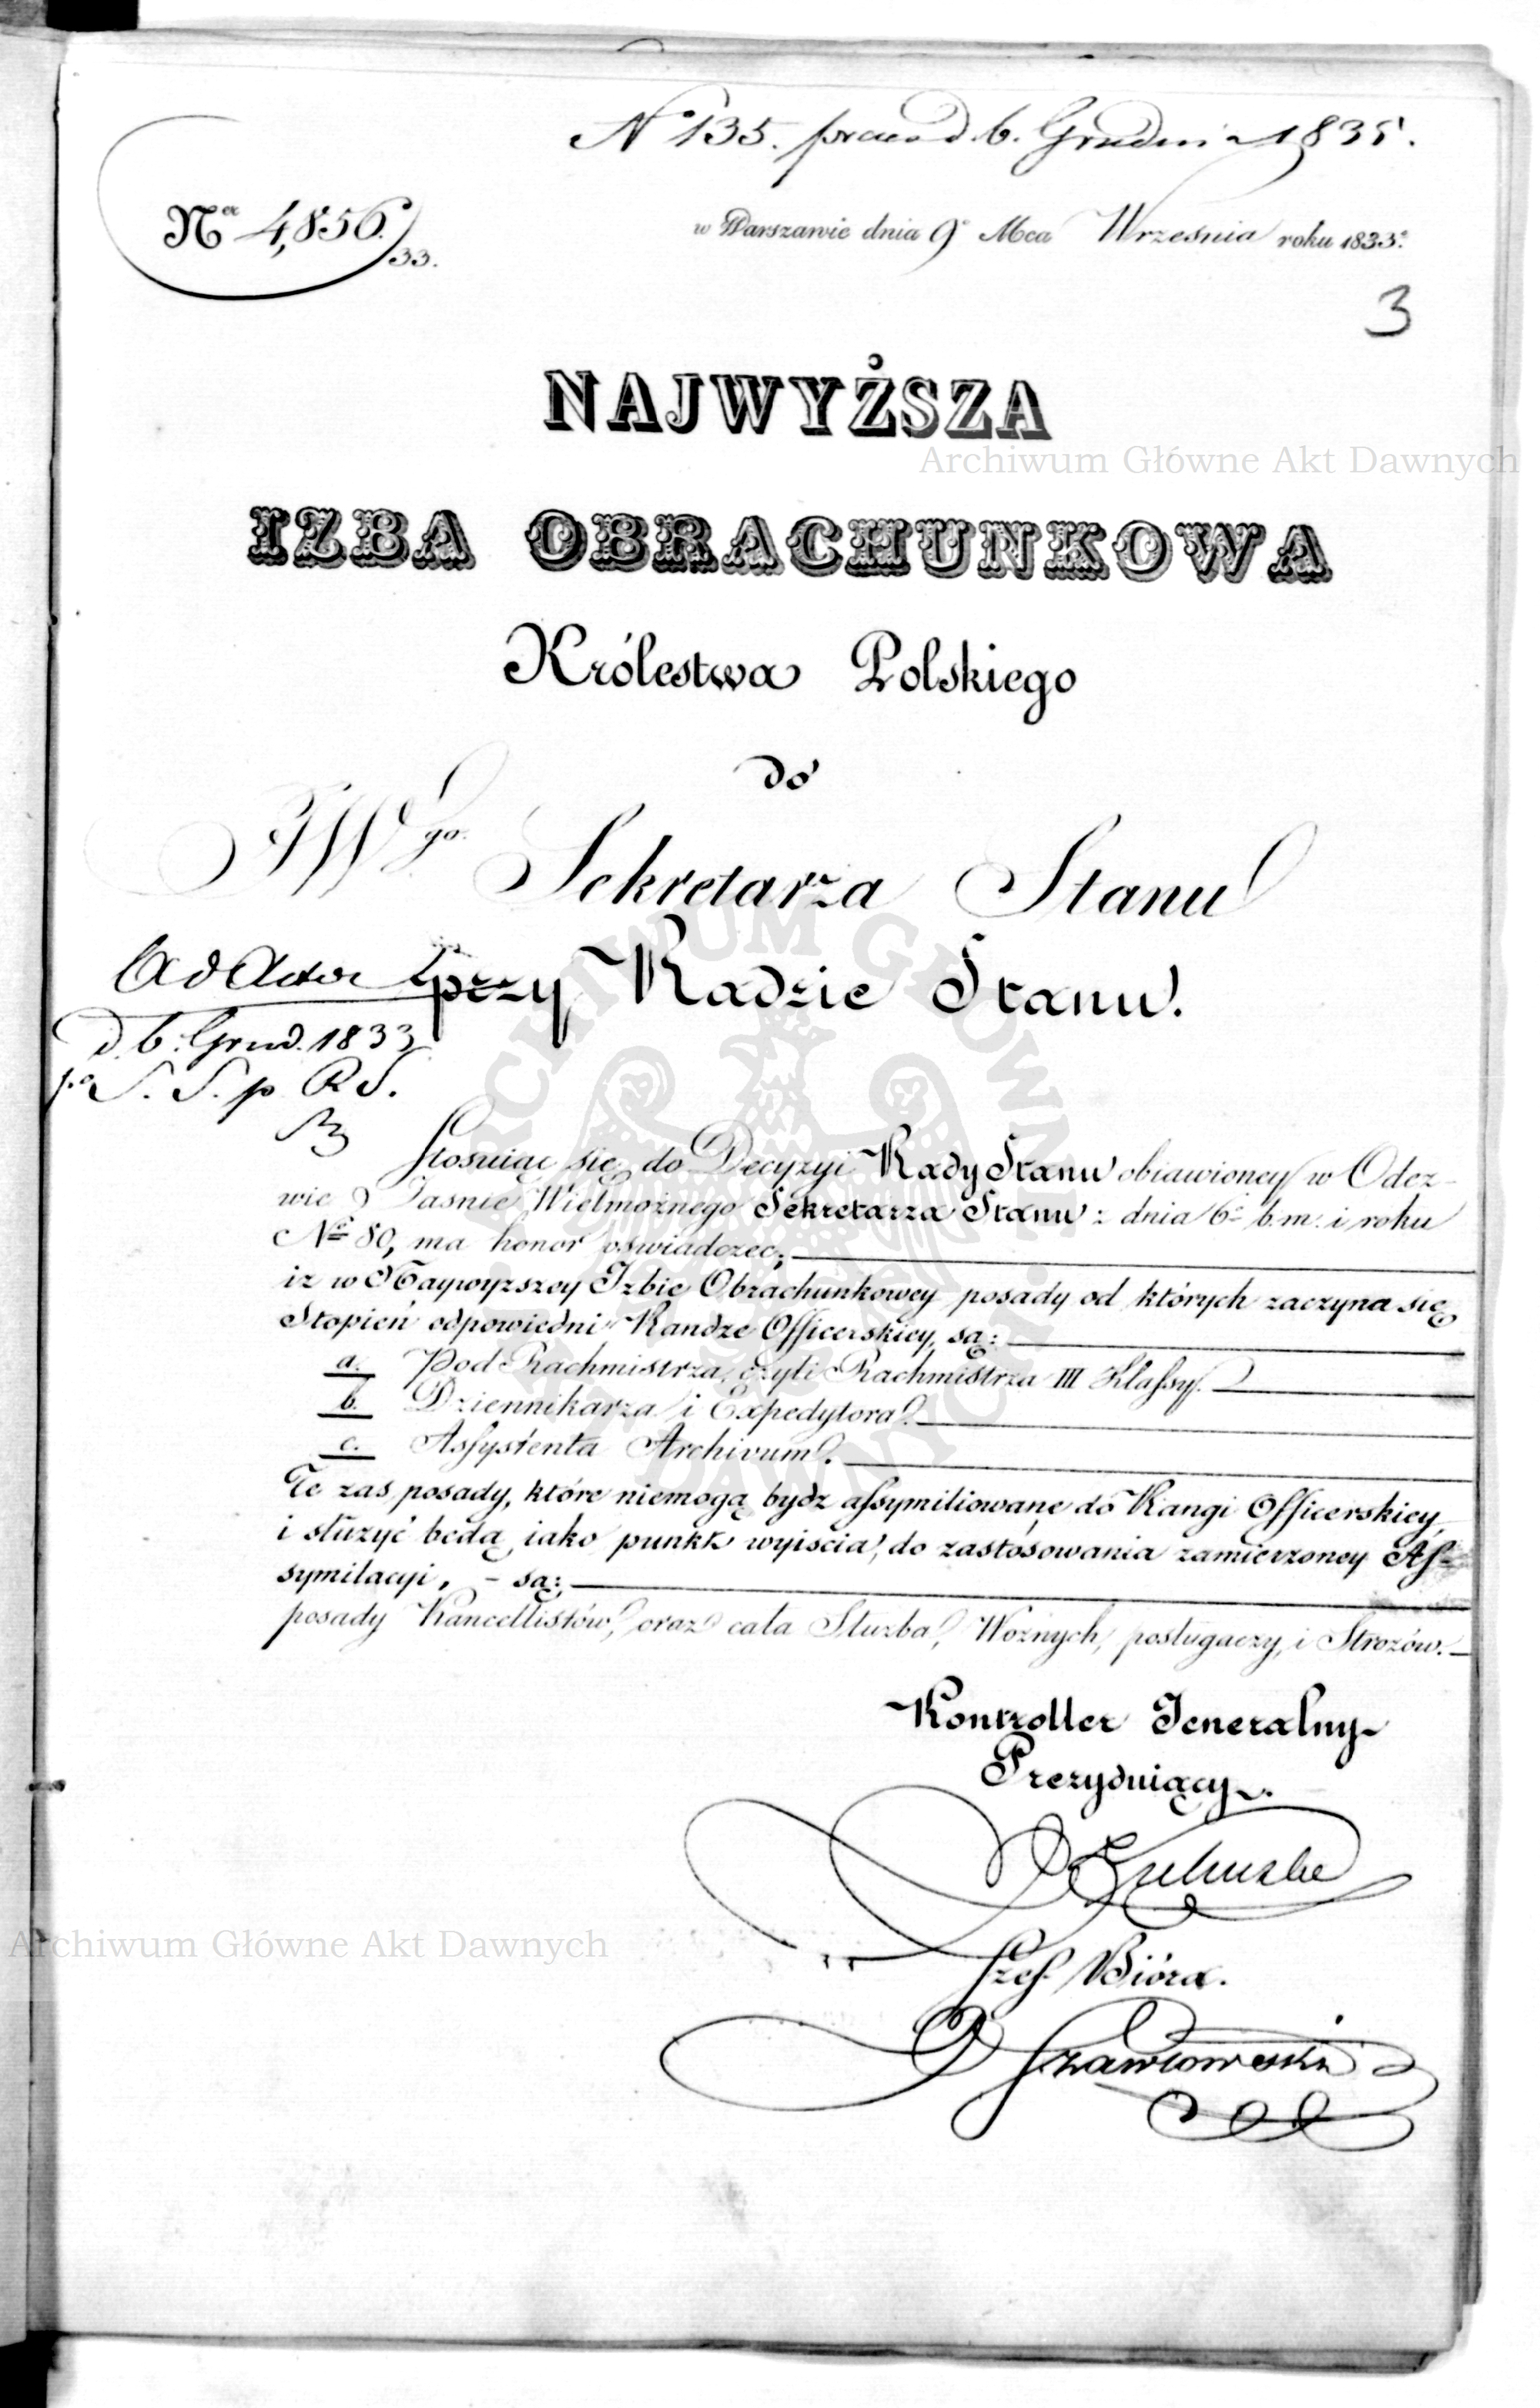 N 135. 6. Grudnia 183
Nr 4,856./33.
w Warszawie dnia 9° Mca Września roku 1833°.
3
NAJWYŻSZA
IZBA OBRACHUNKOWA
Królestwa Polskiego
do
JWgo. Sekretarza Stanu
przy Radzie Stanu.
Ad Acta
d. 6. Grud. 1833
S. S. p. R S.
Stosuiąc się do Decyzyi Rady Stanu obiawioney w Odez-
wie Jaśnie Wielmożnego Sekretarza Stanu z dnia 6° b.m. i roku
No 80, ma honor oświadczec,
iż w Naywyższey Izbie Obrachunkowey posady od których zaczyna się
Stopień odpowiedni Randze Officerskiey, są:
a. Pod Rachmistrza, czyli Rachmistrza III Klassy.
b. Dziennikarza i Expedytora.
c. Assystenta Archivum.
Te zaś posady, które niemogą bydz assymiliowane do Rangi Officerskiey,
i służyć będą iako punkt wyiścia, do zastósowania zamierzoney As-
symilacyi, - są:
posady Kancellistów, oraz cała Służba, Woźnych, posługaczy, i Stróżów.
Kontroller Jeneralny
Prezyduiący.
Szef Bióra.
Archiwum Główne Akt Dawnych
Archiwum Główne Akt Dawnych
ARCHIWUM GŁÓWNE AKT DAWNYCH